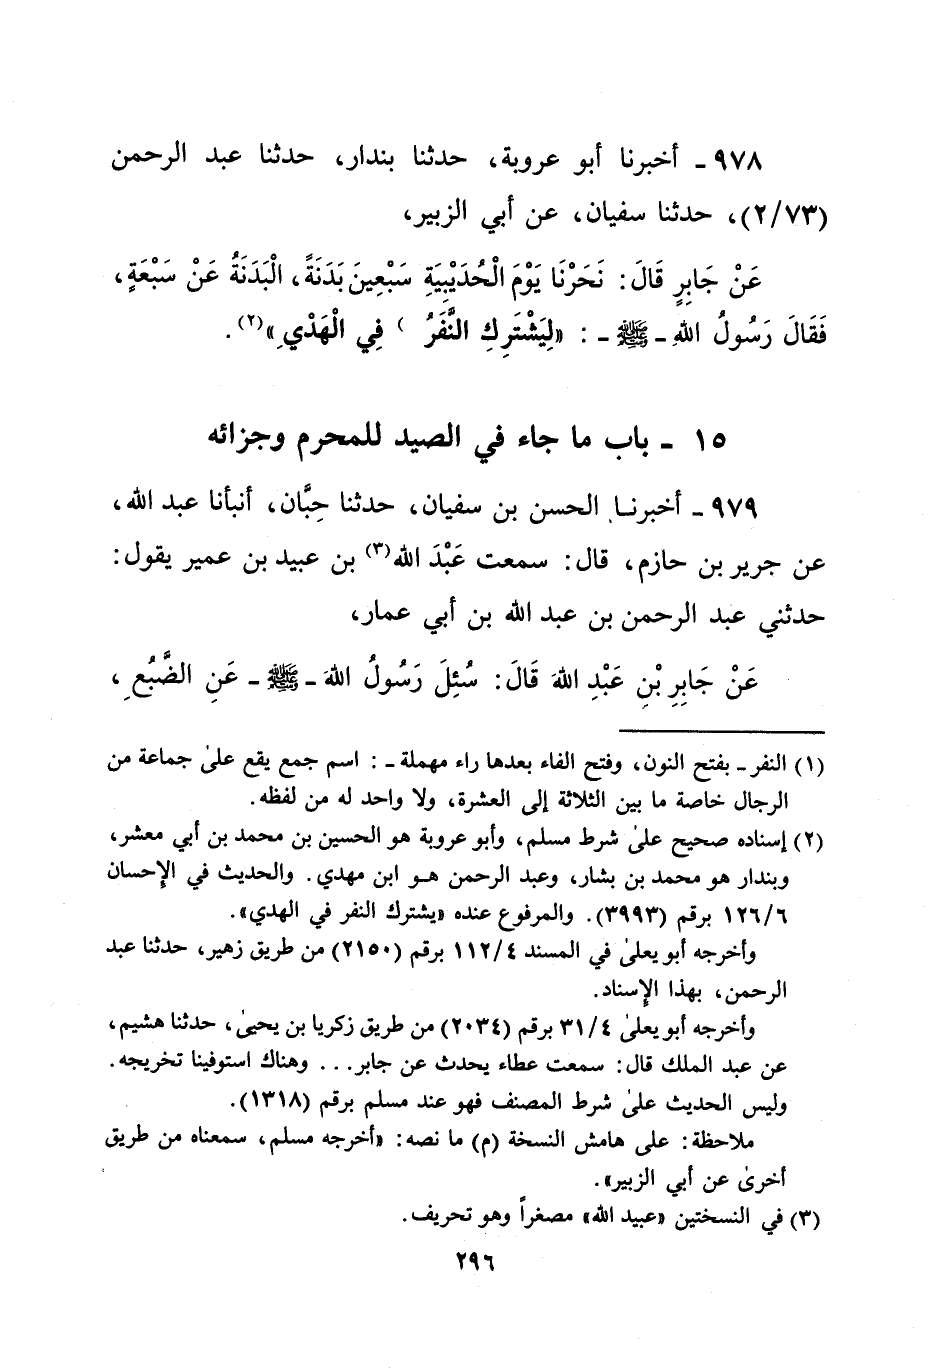 ٩٧٨ ـ أخبرنا أبو عروبة، حدثنا بندار، حدثنا عبد الرحمن
(٢/٧٣)، حدثنا سفيان، عن أبي الزبير،
عَنْ جَابِرٍ قَالَ: نَحَرْنَا يَوْمَ الْحُدَيْبِيَةِ سَبْعِينَ بَدَنَةً، الْبَدَنَةُ عَنْ سَبْعَةٍ،
فَقَالَ رَسُولُ اللهِ ـ ﷺ ـ : «لِيَشْتَرِكِ النَّفَرُ ) فِي الْهَدْيِ»(٢).
١٥ ـ باب ما جاء في الصيد للمحرم وجزائه
٩٧٩ ـ أخبرنا الحسن بن سفيان، حدثنا حِبَّان، أنبأنا عبد الله،
عن جرير بن حازم، قال: سمعت عَبْدَ الله(٣) بن عبيد بن عمير يقول:
حدثني عبد الرحمن بن عبد الله بن أبي عمار،
عَنْ جَابِرِ بْنِ عَبْدِ اللهِ قَالَ: سُئِلَ رَسُولُ اللهَ ـ ﷺ ـ عَنِ الضَّبُعِ،
(١) النفر ـ بفتح النون، وفتح الفاء بعدها راء مهملة ـ : اسم جمع يقع علىٰ جماعة من
الرجال خاصة ما بين الثلاثة إلى العشرة، ولا واحد له من لفظه.
(٢) إسناده صحيح علىٰ شرط مسلم، وأبو عروبة هو الحسين بن محمد بن أبي معشر،
وبندار هو محمد بن بشار، وعبد الرحمن هو ابن مهدي. والحديث في الإحسان
١٢٦/٦ برقم (٣٩٩٣). والمرفوع عنده «يشترك النفر في الهدي».
وأخرجه أبو يعلىٰ في المسند ١١٢/٤ برقم (٢١٥٠) من طريق زهير، حدثنا عبد
الرحمن، بهذا الإسناد.
وأخرجه أبو يعلىٰ ٣١/٤ برقم (٢٠٣٤) من طريق زكريا بن يحيىٰ، حدثنا هشيم،
عن عبد الملك قال: سمعت عطاء يحدث عن جابر... وهناك استوفينا تخريجه.
وليس الحديث علىٰ شرط المصنف فهو عند مسلم برقم (١٣١٨).
ملاحظة: على هامش النسخة (م) ما نصه: «أخرجه مسلم، سمعناه من طريق
أخرىٰ عن أبي الزبير».
(٣) في النسختين «عبيد الله» مصغراً وهو تحريف.
٢٩٦